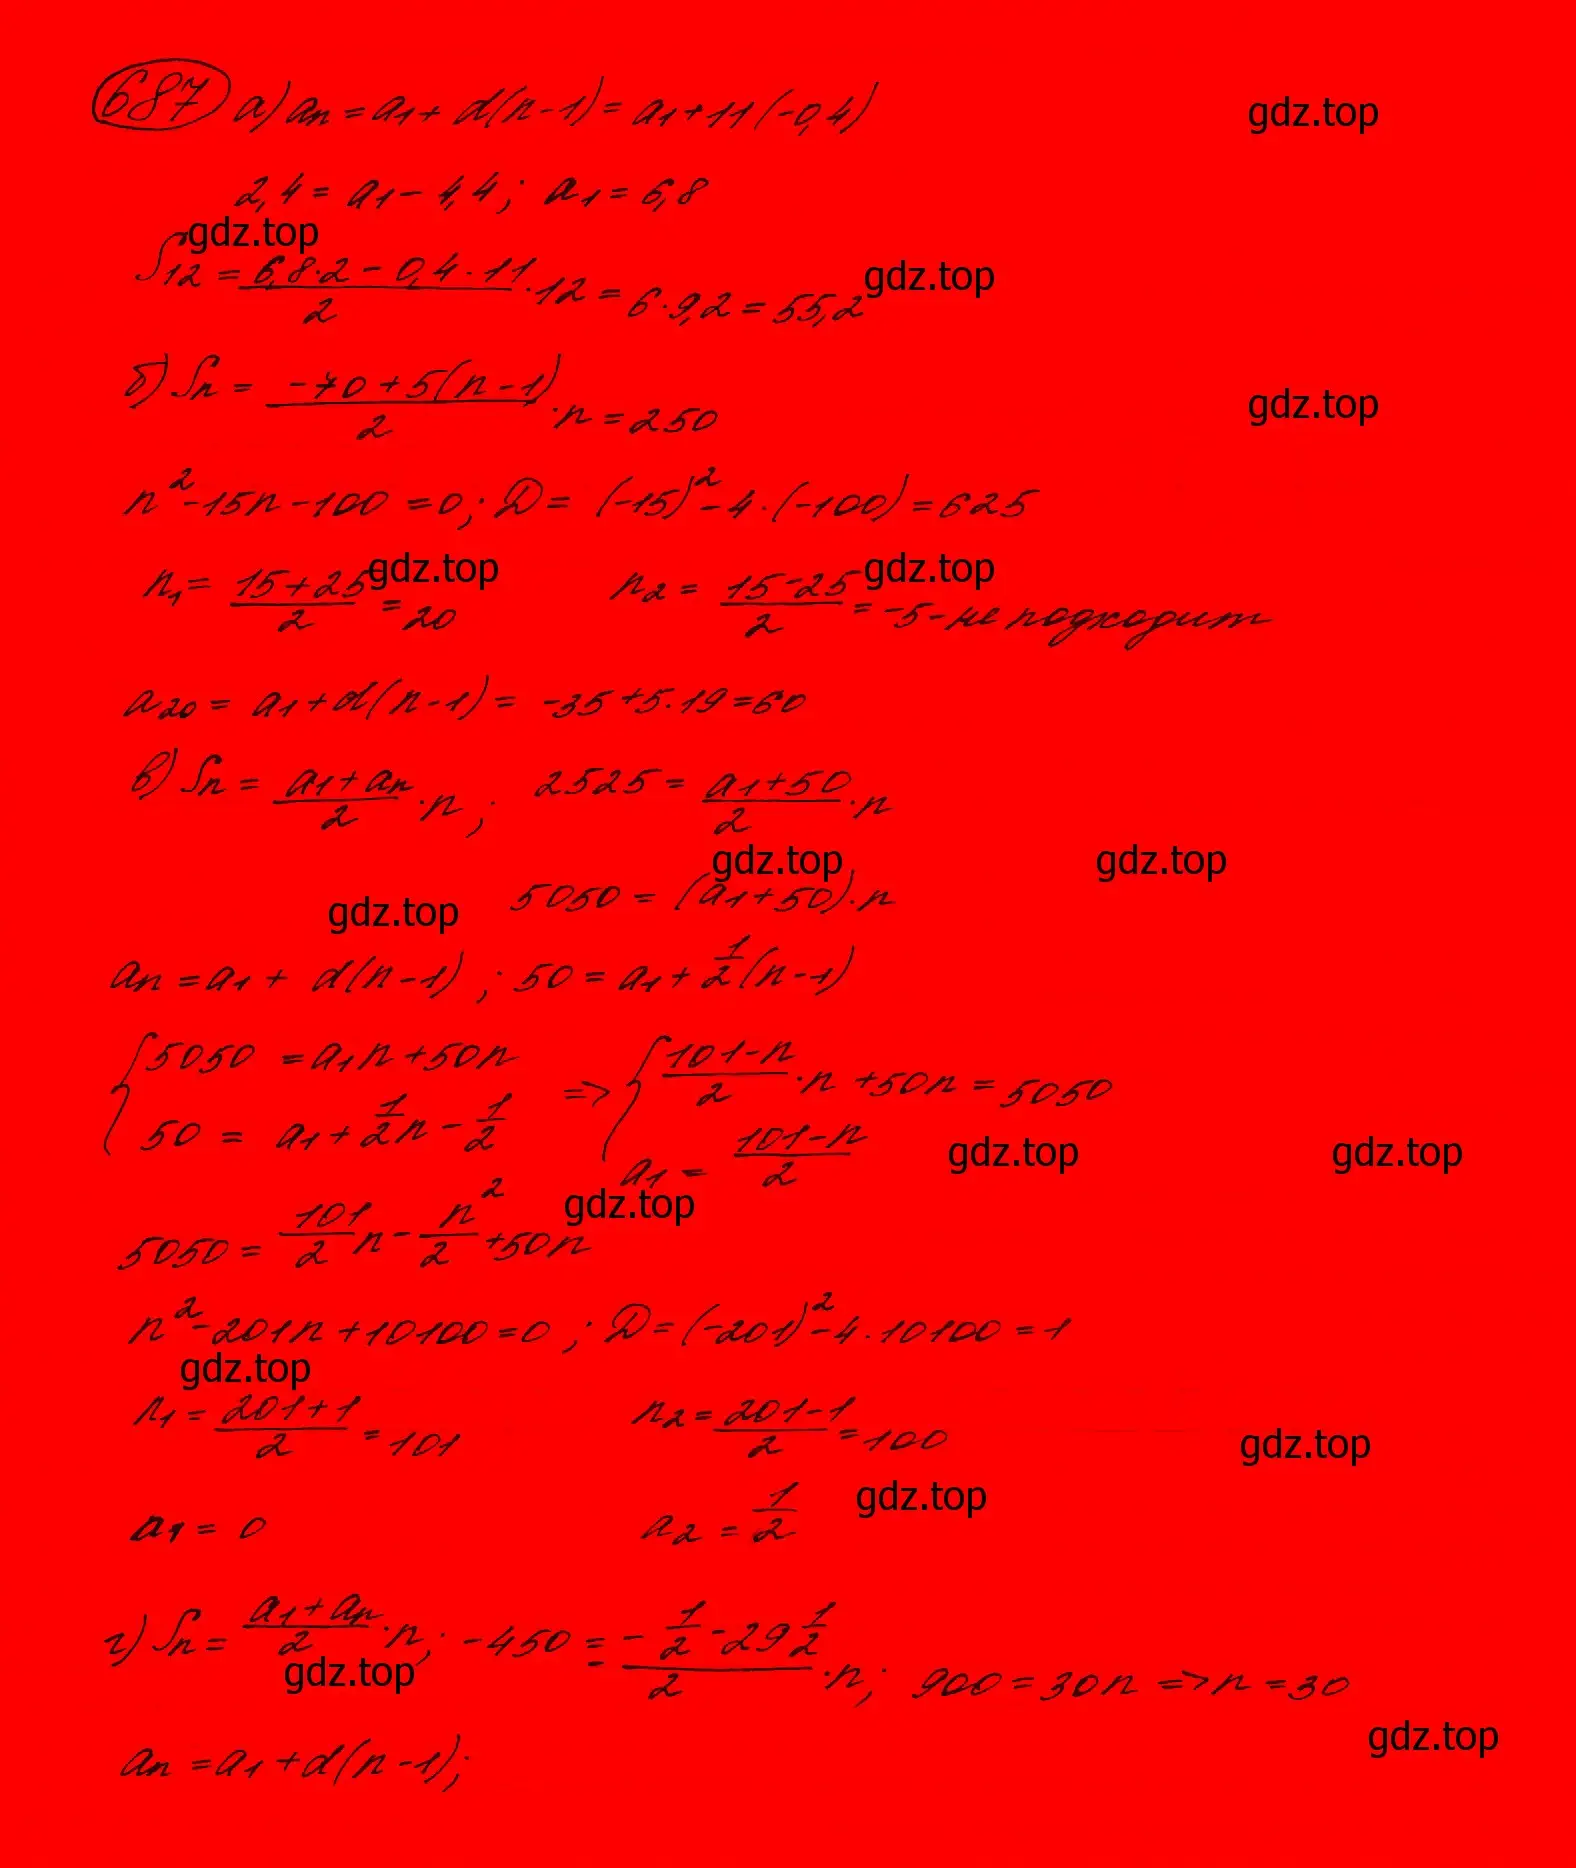 687 а) an = a1 + d(n-1) = a1 + 11(-0,4)
gdz.top
2,4 = a1 - 4,4; a1 = 6,8
gdz.top
S12 = (6,8·2 - 0,4·11)/2 · 12 = 6·9,2 = 55,2
gdz.top
б) Sn = (-70 + 5(n-1))/2 · n = 250
gdz.top
n² - 15n - 100 = 0; D = (-15)² - 4·(-100) = 625
gdz.top gdz.top
n1 = (15+25)/2 = 20 n2 = (15-25)/2 = -5 - не подходит
a20 = a1 + d(n-1) = -35 + 5·19 = 60
в) Sn = (a1 + an)/2 · n; 2525 = (a1+50)/2 · n
gdz.top gdz.top
5050 = (a1+50)·n
gdz.top
an = a1 + d(n-1); 50 = a1 + 1/2(n-1)
{ 5050 = a1n + 50n => { (101-n)/2 · n + 50n = 5050
50 = a1 + 1/2n - 1/2 a1 = (101-n)/2
gdz.top gdz.top
gdz.top
5050 = 101/2 n - n²/2 + 50n
n² - 201n + 10100 = 0; D = (-201)² - 4·10100 = 1
gdz.top
n1 = (201+1)/2 = 101 n2 = (201-1)/2 = 100
gdz.top
gdz.top
a1 = 0 a2 = 1/2
г) Sn = (a1 + an)/2 · n; -450 = (-1/2 - 29 1/2)/2 · n; 900 = 30n => n = 30
gdz.top
gdz.top
an = a1 + d(n-1);